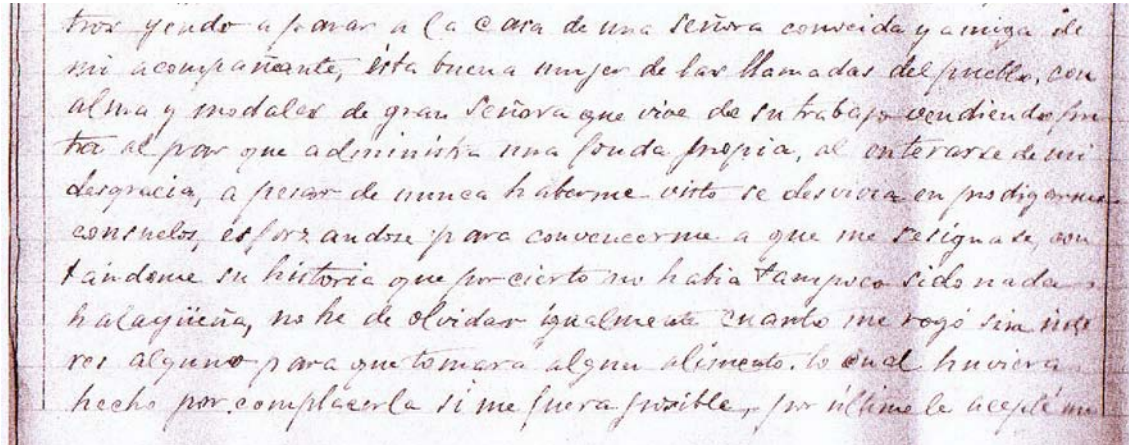 tros yendo a parar a la casa de una señora conocida y amiga de
mi acompañante, ésta buena mujer de las llamadas del pueblo, con
alma y modales de gran señora que vive de su trabajo vendiendo fru
ta al par que administra una fonda propia, al enterarse de mi
desgracia, a pesar de nunca haberme visto se desvivia en prodigarme
consuelos, esforzandose para convencerme a que me resignase, con
tándome su historia que por cierto no habia tampoco sido nada
halagüeña, no he de olvidar igualmente cuanto me rogó sin inte
res alguno para que tomara algun alimento. lo cual huviera
hecho por complacerla si me fuera posible, por último le acepté un